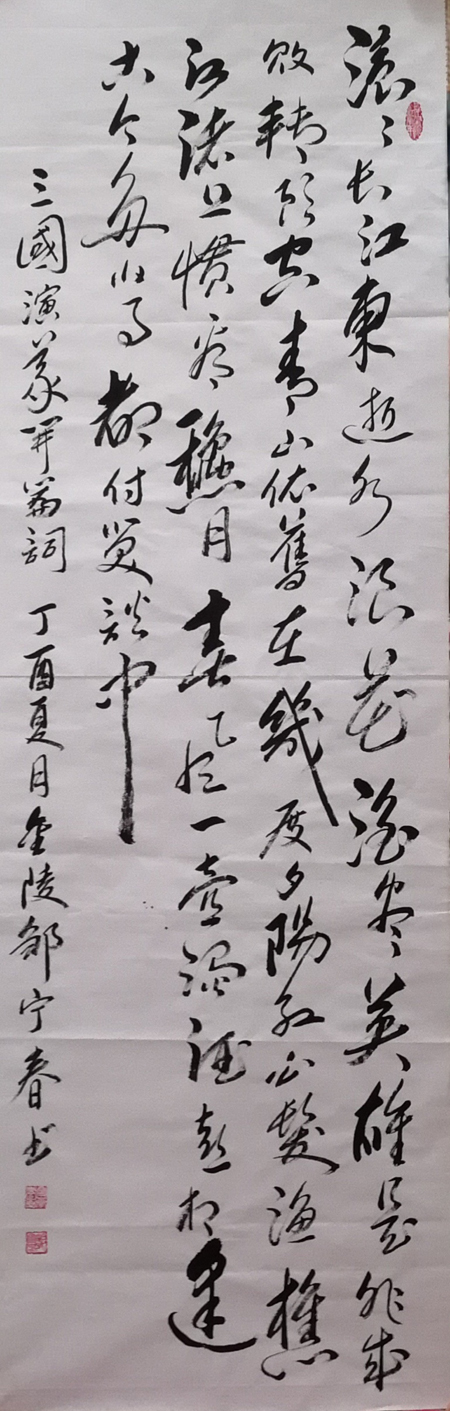 滚滚长江東逝水浪花淘尽英雄是非成
败转頭空青山依舊在幾度夕陽红白髮渔樵
江渚上惯看穐月春風一壶濁酒喜相逢
古今多少事都付笑談中
三國演义开篇詞 丁酉夏月金陵邹宁春书